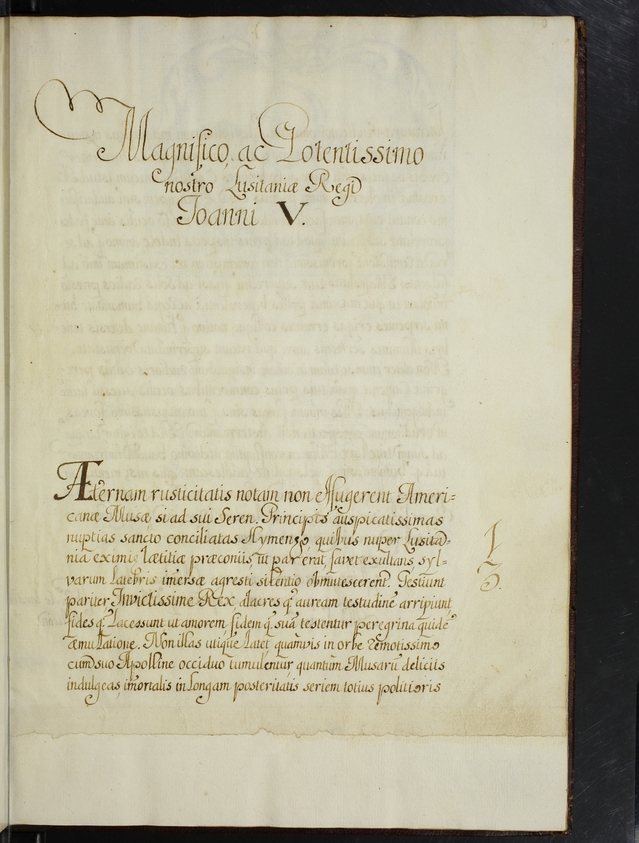 Magnifico, ac Potentissimo
nostro Lusitaniæ Regi
Joanni V.
Æternam rusticitatis notam non effugerent Ameri-
canæ Musæ si ad sui Seren. Principis auspicatissimas
nuptias sancto conciliatas Hymenęo, quibus nuper Lusita-
nia eximię lætitiæ præconijs, ut par erat, favet exultans, syl-
varum latebris imersæ agresti silentio obmutescerent. Gestiunt
pariter Invictissime Rex, alacres q̃ auream testudinē arripiunt
fides q̃ Lacessunt ut amorem fidem q̃ suā testentur peregrina quidē
æmulatione. Non illas utique Latet quamvis in orbe remotissimo
cum suo Apolline occiduo tumulentur quantum Musarū deliciis
indulgeas, im̃ortalis in Longam posteritatis seriem totius politioris